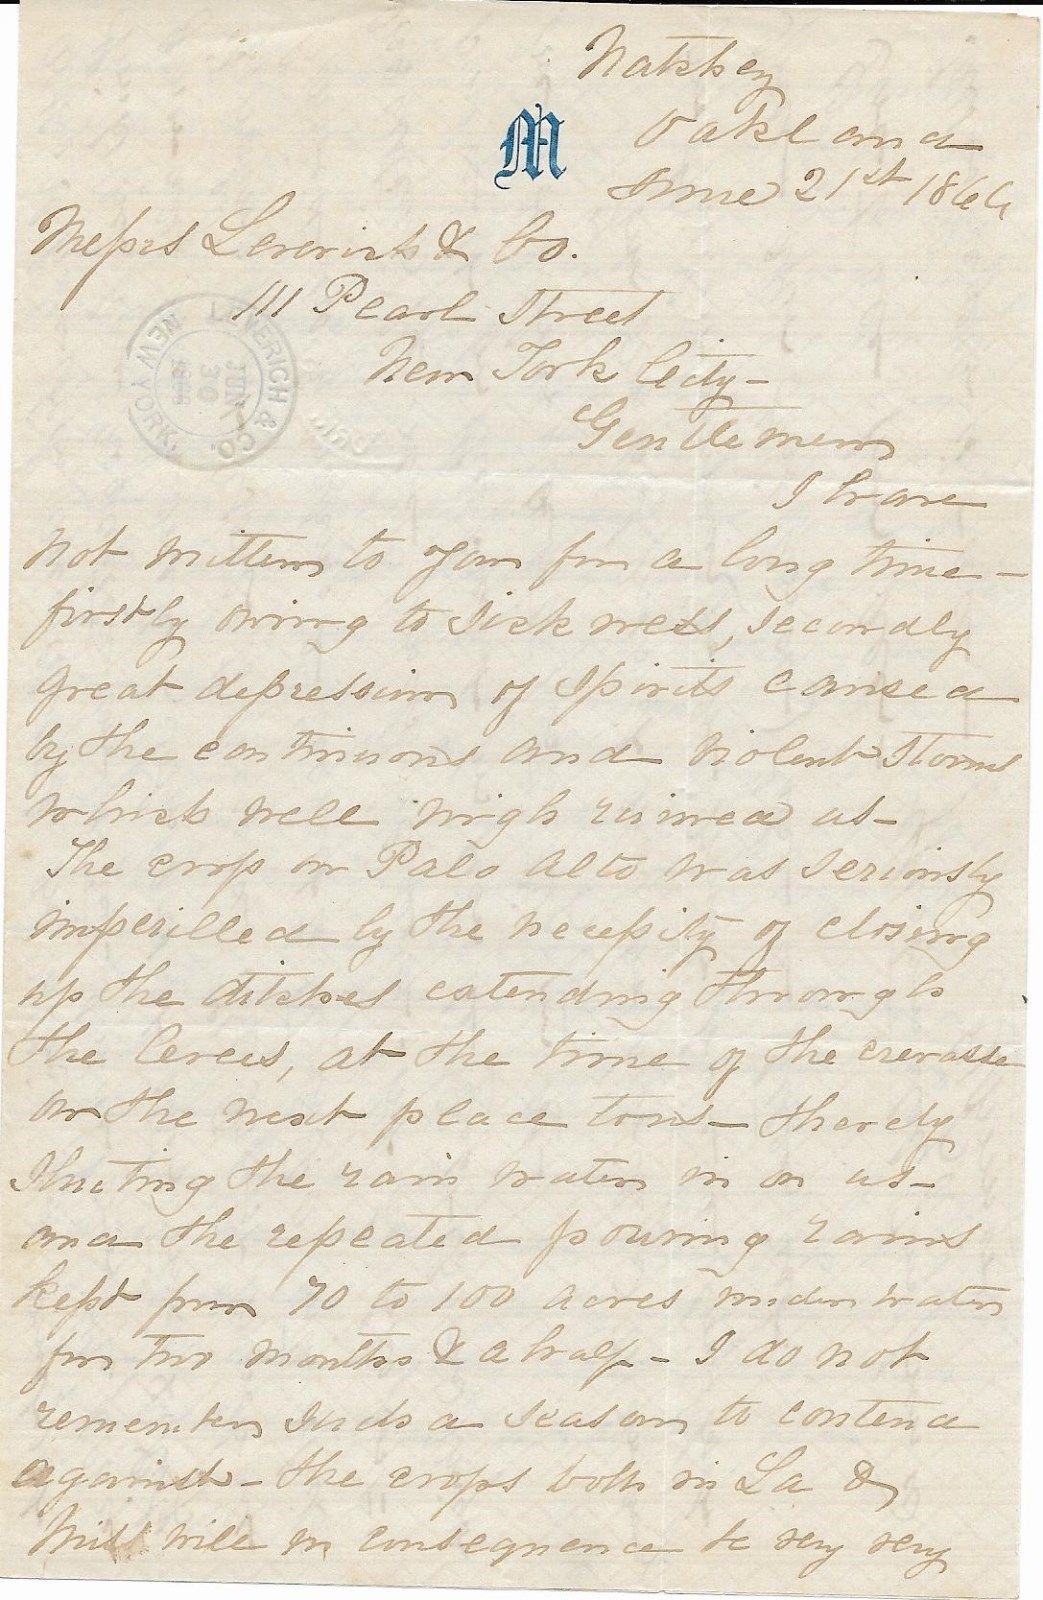 Natchez
Oakland
M
June 21st 1866
Messrs Leverich & Co.
111 Pearl Street
New York City -
Gentlemen
LEVERICH & CO.
JUN
30
NEW YORK.
I have
not written to you for a long time -
firstly owing to sickness, secondly
great depression of spirits caused
by the continuous and violent storms
which well nigh ruined us -
The crop on Palo Alto was seriously
imperilled by the necessity of closing
up the ditches extending through
the levees, at the time of the crevasse
on the next place to us - thereby
shutting the rain water in on us -
and the repeated pouring rains
kept from 70 to 100 acres under water
for two months & a half - I do not
remember such a season to contend
against - the crops both in La &
Miss will in consequence be very very